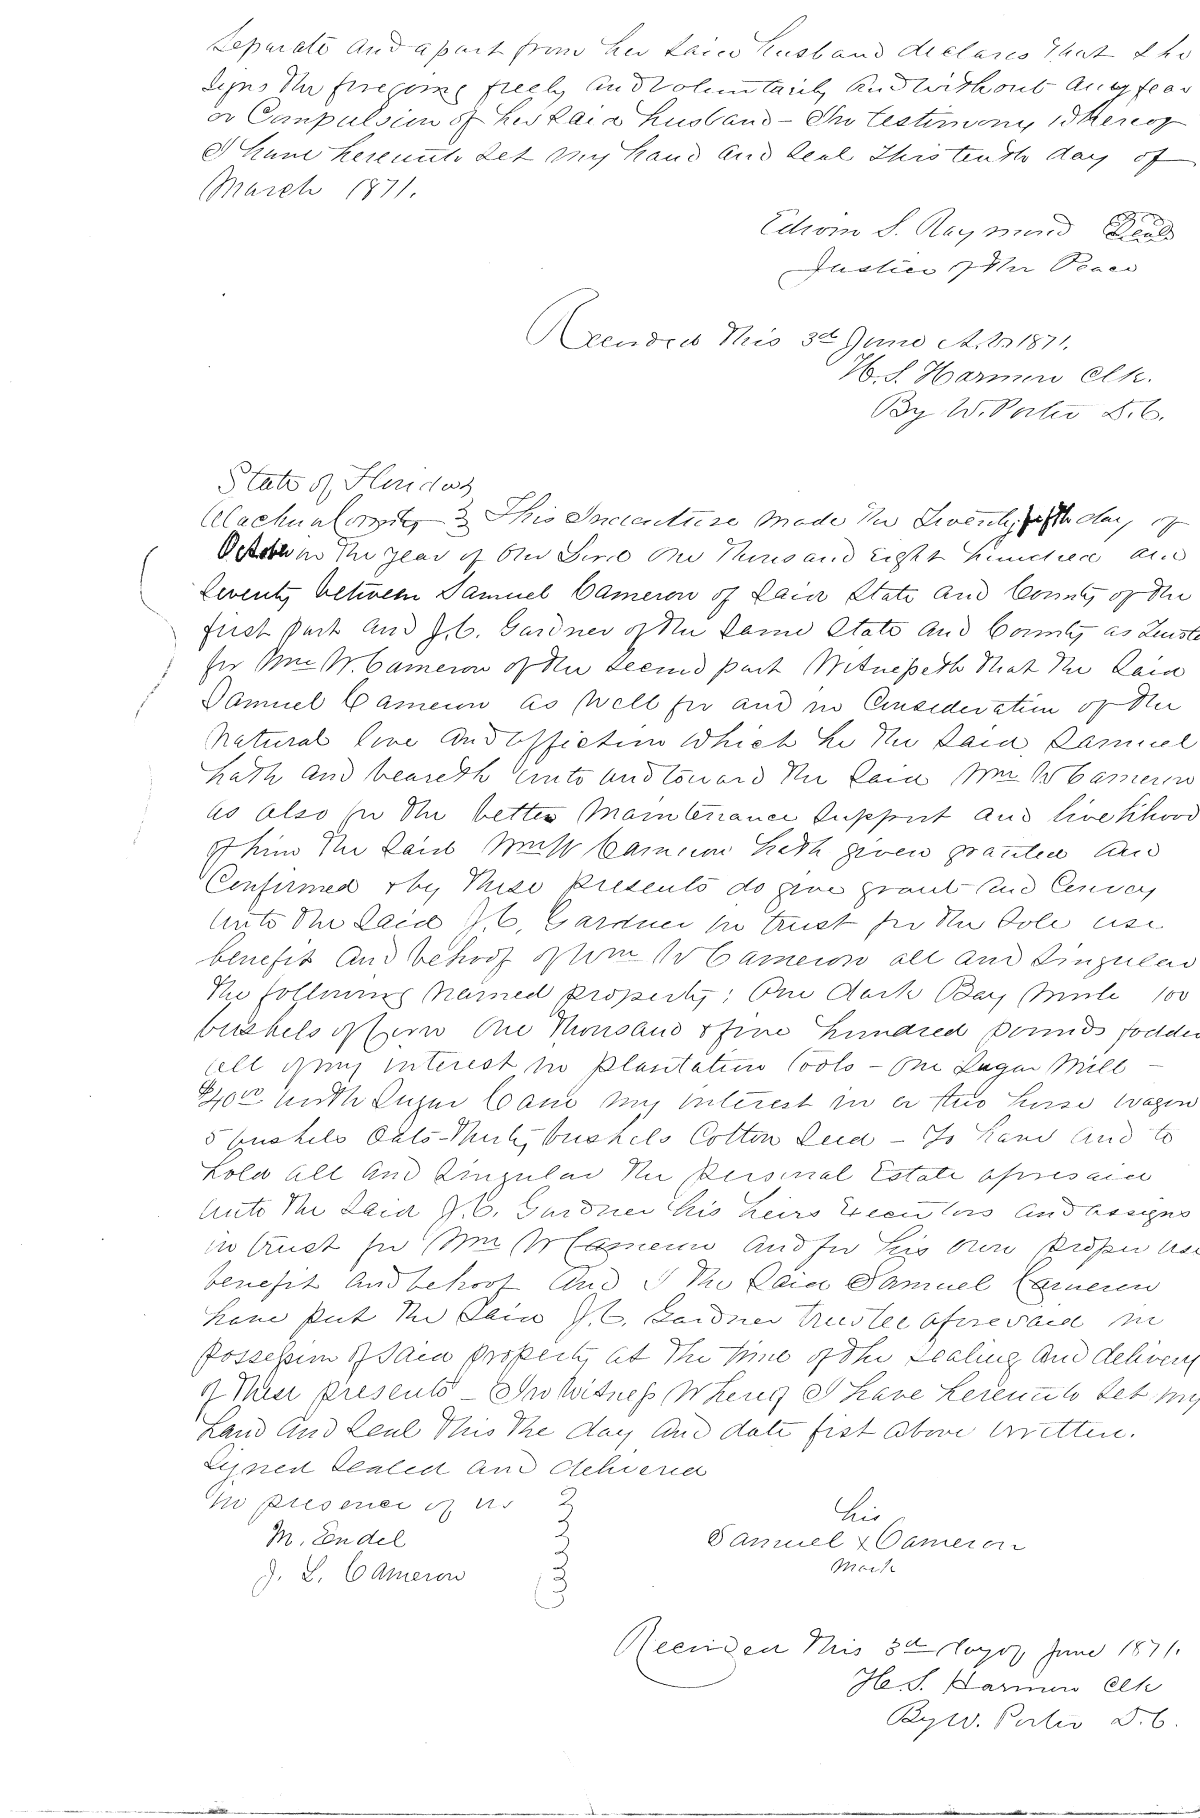 Separate and apart from her Said husband declares that She
Signs the foregoing freely and voluntarily and without any fear
or Compulsion of her Said husband - In testimony Whereof
I have hereunto Set my hand and Seal This tenth day of
March 1871.
Edwin S. Raymond Seal
Justice of the Peace
Recorded This 3d June A.D. 1871.
H. S. Harmon Clk.
By W. Porter D.C.
State of Florida
Alachua County } This Indenture made the Twenty fifth day of
October in the year of Our Lord One Thousand Eight hundred and
Seventy between Samuel Cameron of Said State and County of the
first part and J. C. Gardner of the Same State and County as Truste
for Wm W. Cameron of the Second part Witnesseth that the Said
Samuel Cameron as Well for and in Consideration of the
Natural love and affection Which he the Said Samuel
hath and beareth unto and toward the Said Wm W Cameron
as also for the better Maintenance Support and livelihood
of him the Said Wm W Cameron hath given granted and
Confirmed & by These presents do give grant and Convey
Unto the Said J. C. Gardner in trust for the Sole use
benefit and behoof of Wm W Cameron all and Singular
the following Named property; One dark Bay Mule 100
bushels of Corn One Thousand & five hundred pounds fodder
all of my interest in Plantation Tools - One Sugar Mill -
$40.00 worth Sugar Cane my interest in a two horse wagon
5 bushels Oats - Thirty bushels Cotton Seed - To have and to
hold all and Singular the Personal Estate aforesaid
Unto the Said J. C. Gardner his heirs Executors and assigns
in trust for Wm W Cameron and for his own proper use
benefit and behoof And I the Said Samuel Cameron
have put the Said J. C. Gardner trustee aforesaid in
possession of said property at the time of the Sealing and delivery
of these presents - In Witness Whereof I have hereunto Set my
hand and Seal this the day and date fist above written.
Signed Sealed and delivered
in presence of us
M. Endel
J. L. Cameron
his
Samuel x Cameron
mark
Recorded this 3d day of June 1871.
H. S. Harmon Clk
By W. Porter D.C.